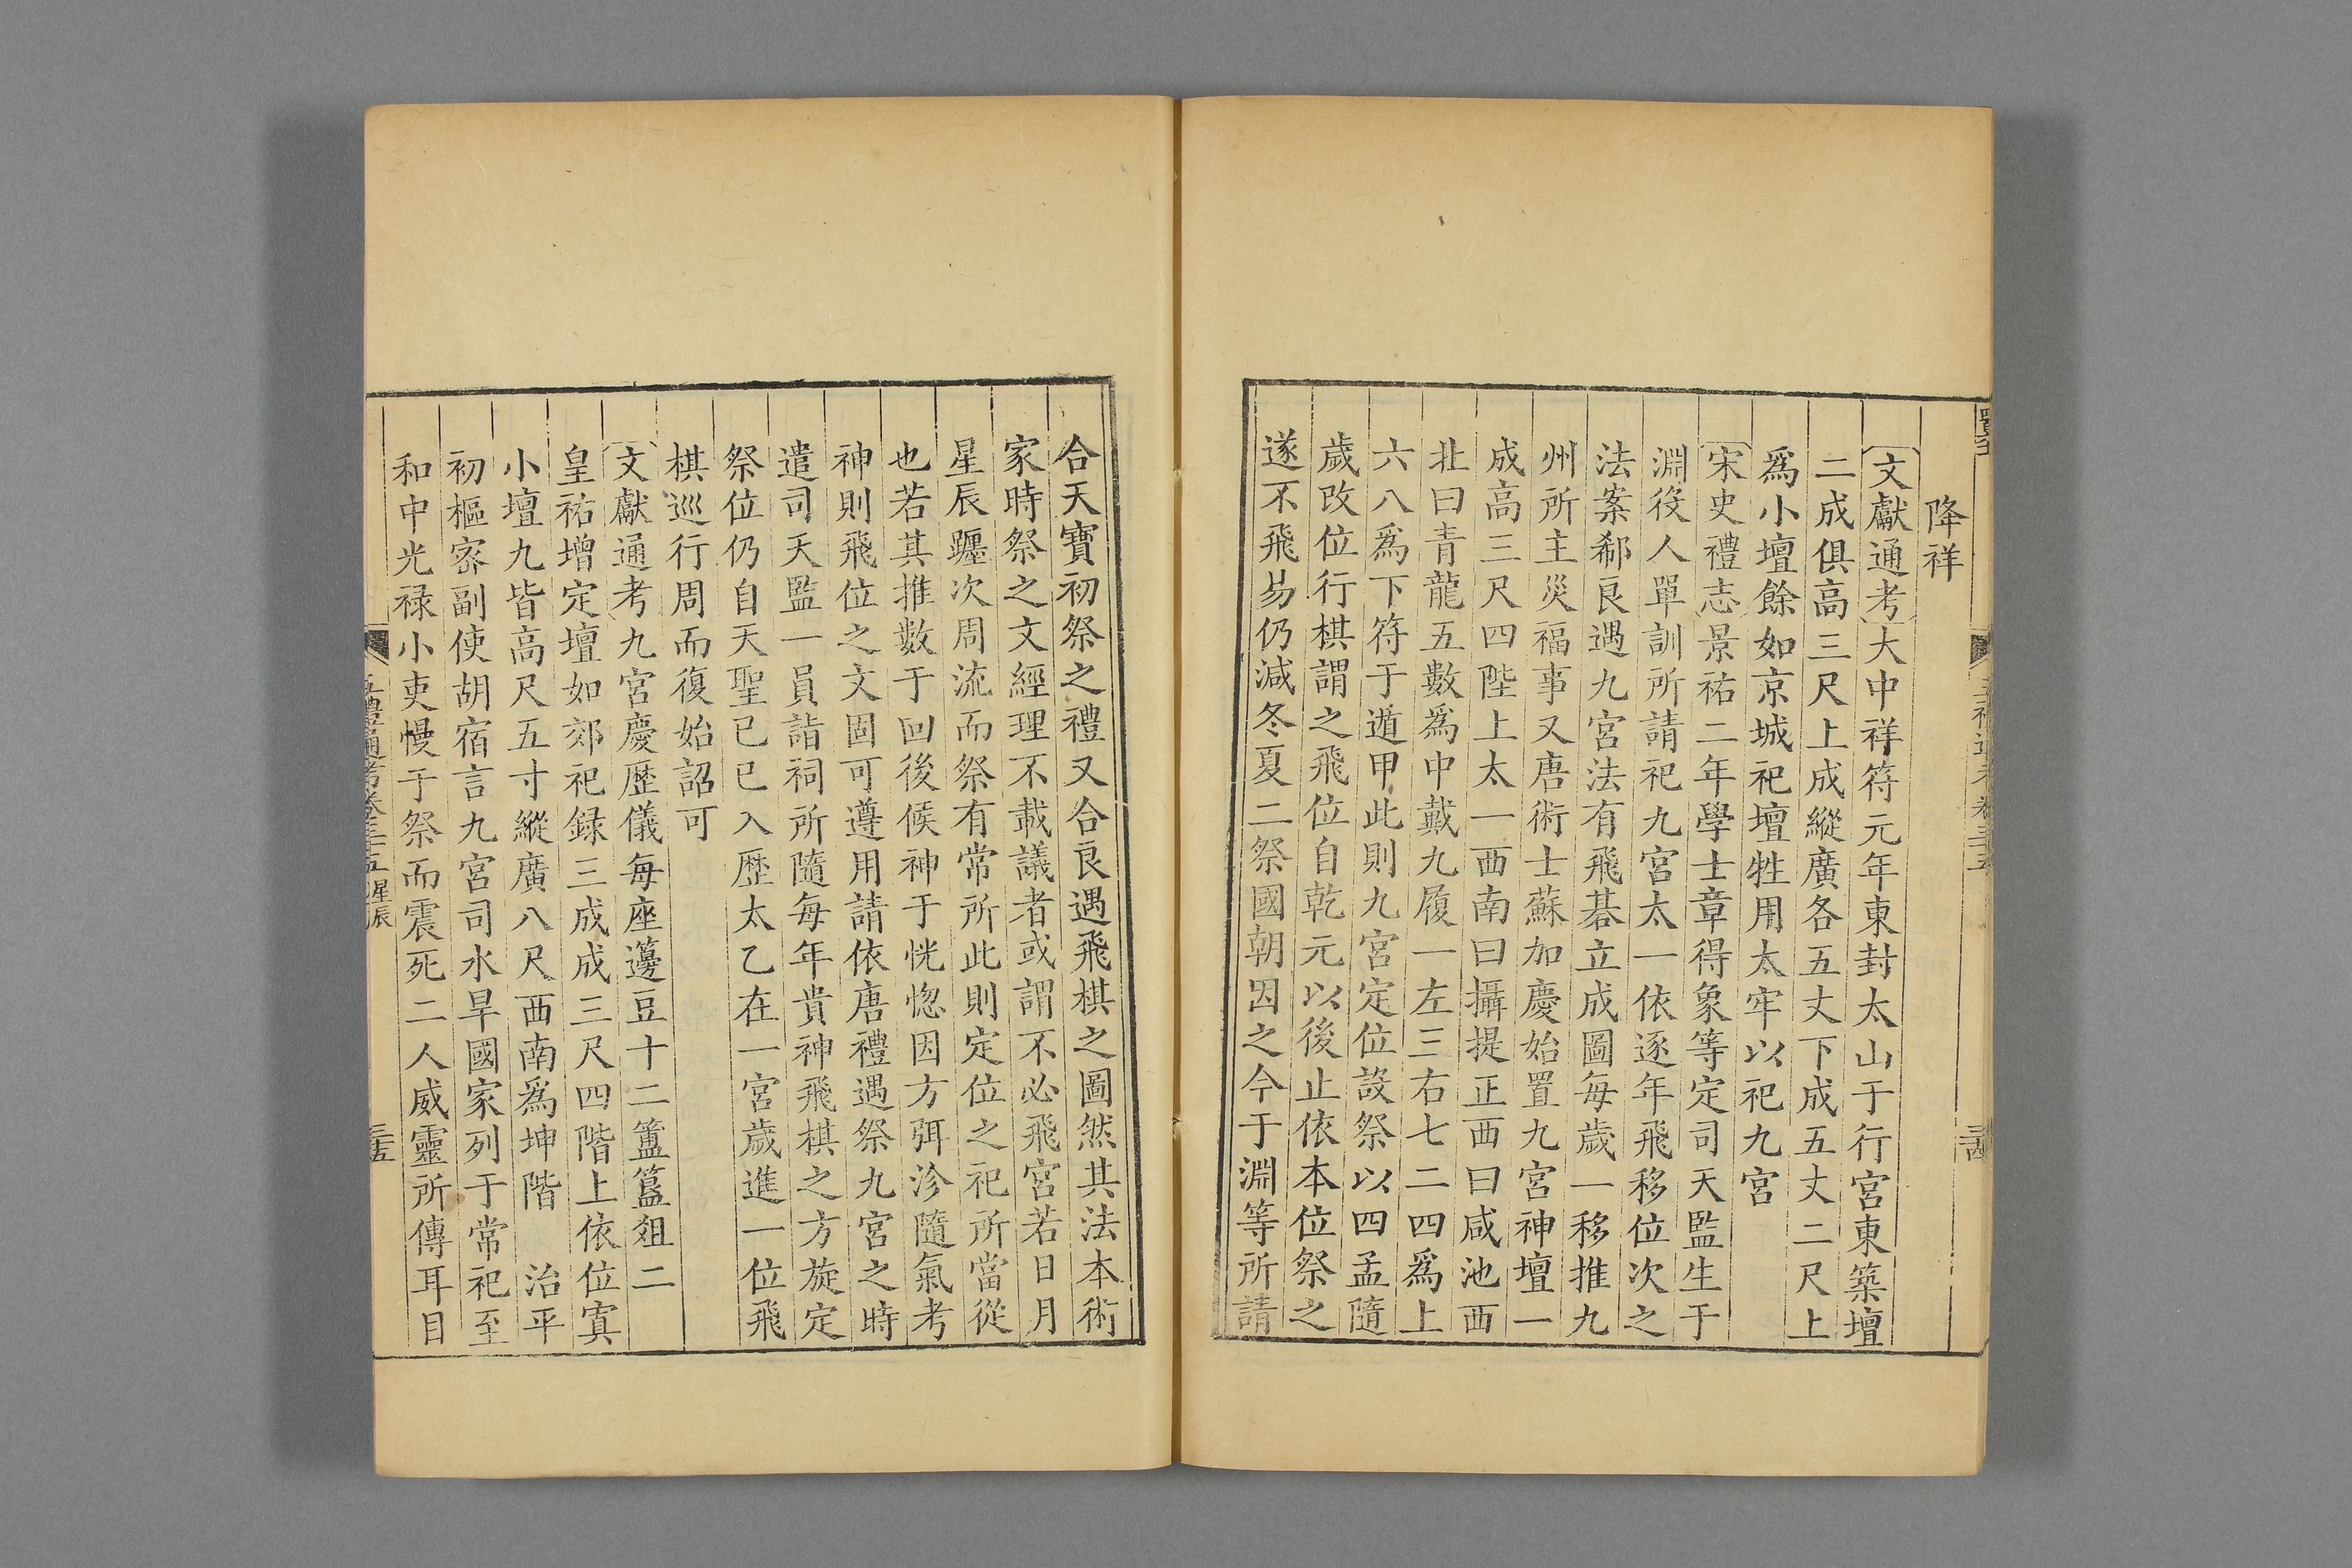 降祥
文獻通考大中祥符元年東封太山于行宮東築壇
二成俱高三尺上成縱廣各五丈下成五丈二尺上
爲小壇餘如京城祀壇牲用太牢以祀九宮
宋史禮志景祐二年學士章得象等定司天監生于
淵役人單訓所請祀九宮太一依逐年飛移位次之
法案郗良遇九宮法有飛棊立成圖每歲一移推九
州所主災福事又唐術士蘇加慶始置九宮神壇一
成高三尺四陛上太一西南曰攝提正西曰咸池西
北曰青龍五數爲中戴九履一左三右七二四爲上
六八爲下符于遁甲此則九宮定位設祭以四孟隨
歲改位行棋謂之飛位自乾元以後止依本位祭之
遂不飛易仍減冬夏二祭國朝因之今于淵等所請
合天寶初祭之禮又合良遇飛棋之圖然其法本術
家時祭之文經理不載議者或謂不必飛宮若日月
星辰躔次周流而祭有常所此則定位之祀所當從
也若其推數于回後候神于恍惚因方弭沴隨氣考
神則飛位之文固可遵用請依唐禮遇祭九宮之時
遣司天監一員詣祠所隨每年貴神飛棋之方旋定
祭位仍自天聖己巳入歷太乙在一宮歲進一位飛
棋巡行周而復始詔可
文獻通考九宮慶歷儀每座籩豆十二簠簋俎二
皇祐增定壇如郊祀録三成成三尺四階上依位寘
小壇九皆高尺五寸縱廣八尺西南爲坤階　治平
初樞密副使胡宿言九宮司水旱國家列于常祀至
和中光禄小吏慢于祭而震死二人威靈所傳耳目
五禮通考卷三十五星辰
三五